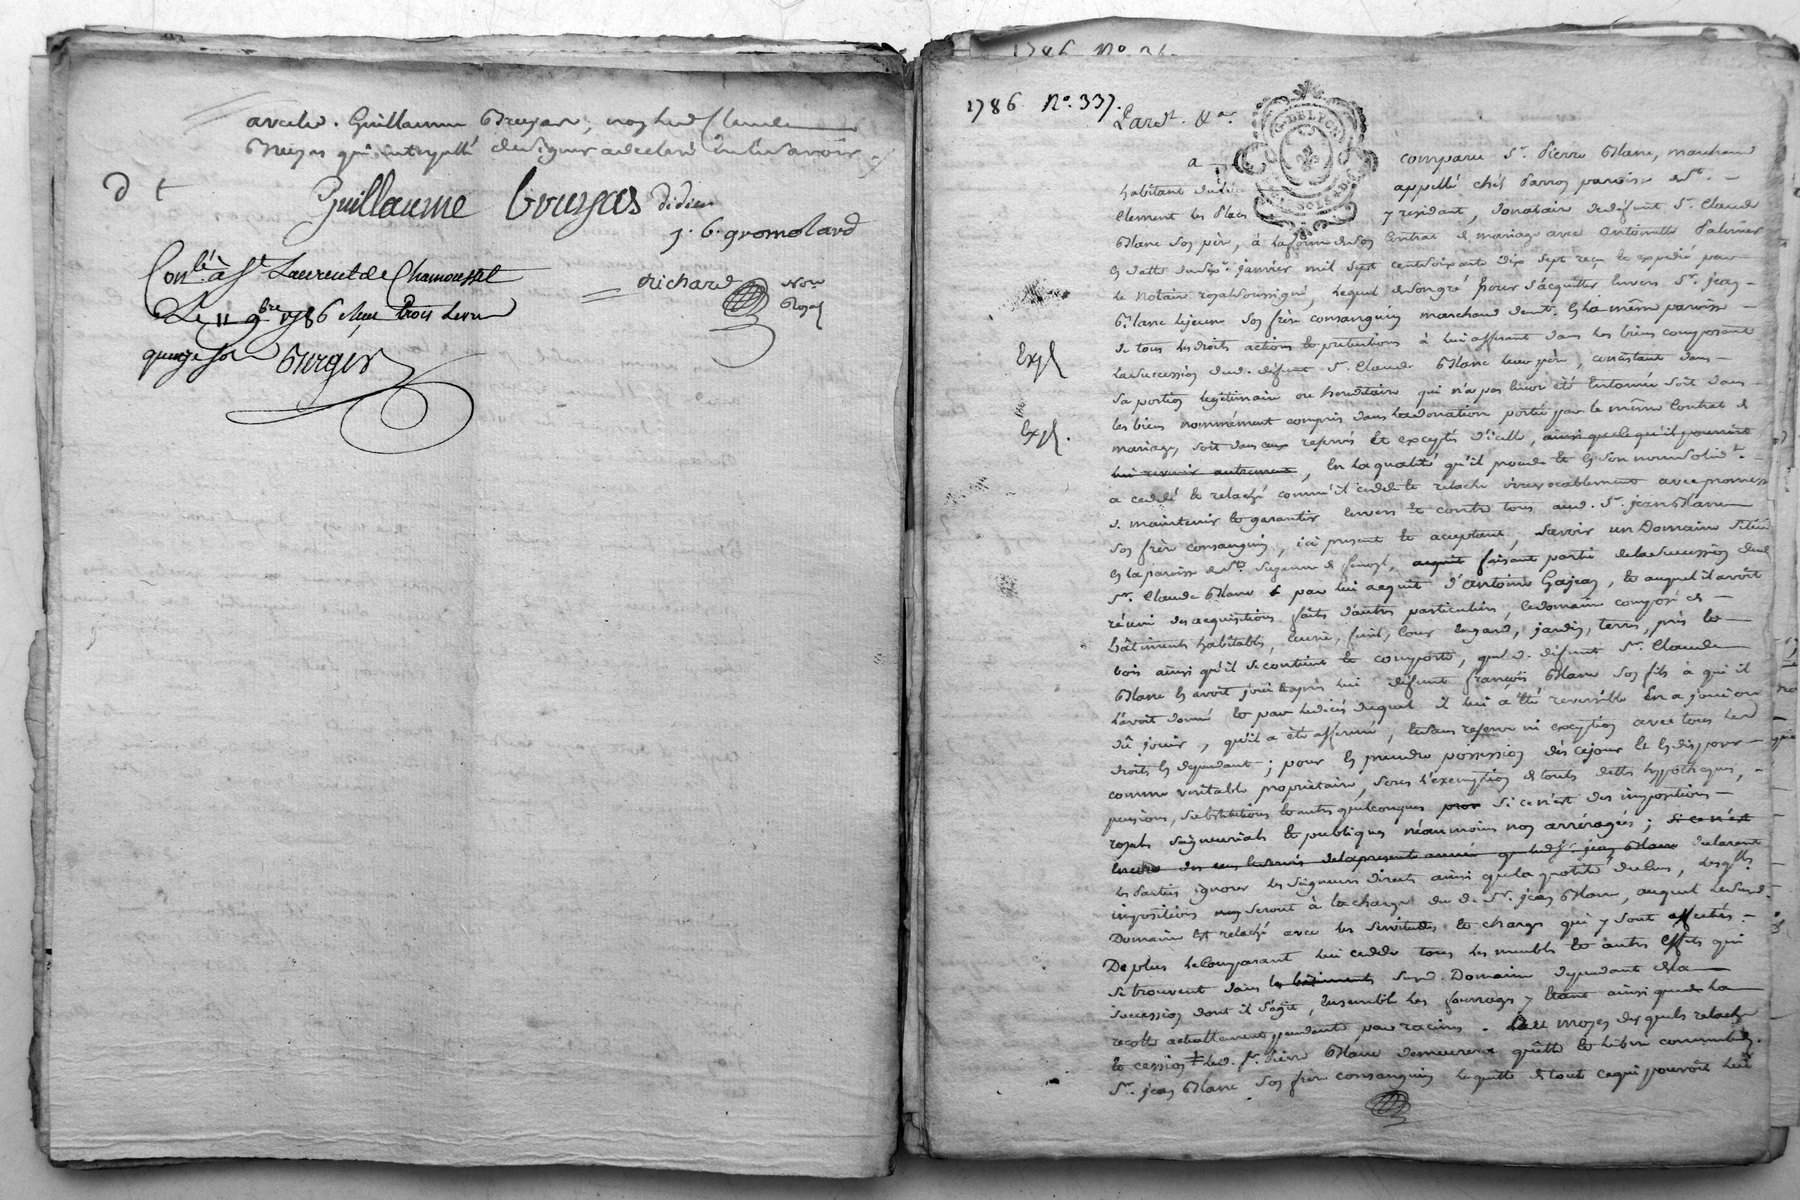 avec led. Guillaume Bruyas, non led. Claude
Bruyas qui interpellé de signer a declaré ne le savoir
Guillaume bruyas didier
j. b. gromolard
Conlé à St Laurent de Chamousset
richard Nore
Le 11 9bre 1786 Reçu trois livres
Royal
quinze s. Berger
1786 No. 31.
1786. No. 337. Pardt. &a.
G. DE LYON
a comparu Sr. Pierre Blanc, marchand
habitant du lieu appellé chés Parroz paroisse de St.
Clement les Places y residant, donataire de defunt Sr. Claude
Blanc son père, à la forme de son Contrat de mariage avec Antoinette Palmier
en datte du janvier mil sept cent soixante dix sept reçu et expedié par
le Notaire royal soussigné, lequel de son gré pour s'acquitter envers Sr. jean
Blanc le jeune son frère consanguin marchand demt. en la même paroisse
Expl
de tous les droits actions et pretentions à lui afferant dans les biens composant
la succession dud. defunt Sr. Claude Blanc leur père, consistante dans
sa portion legitimaire ou hereditaire qui n'a pas encor été entamée soit dans
les biens nommément compris dans la donation portée par le même Contrat de
Expl.
mariage, soit dans ceux reservés et exceptés d'icelle, ainsi que ce qu'il pourroit
lui revenir autrement, en la qualité qu'il procede et en son nom solidt.
a cedé et relaché comme il cede et relache irrevocablement avec promesse
de maintenir et garantir envers et contre tous aud. Sr. jean Blanc
son frère consanguin, ici present et acceptant, savoir un Domaine situé
en la paroisse de Ste. Suzanne de faisant partie de la succession dud.
Sr. Claude Blanc par lui acquit d'Antoine Gajean, et auquel il avoit
réuni des acquisitions faites d'autres particuliers, le domaine composé de
bâtiments habitables, écurie, fenil, Cour, jardin, terres, prés et
bois ainsi qu'il se contient et comporte, que led. defunt Sr. Claude
Blanc en avoit joüi et après lui defunt françois Blanc son fils à qui il
l'avoit donné et par le decés duquel il lui a été reversible en a joui ou
dû jouir, qu'il a été affermé, sans reserve ni exception avec tous les
droits en dependant; pour en prendre possession dès ce jour et en disposer
comme veritable propriétaire, sous l'exemption de toutes dettes hypotheques,
pensions, substitutions et autres quelconques pour si ce n'est des impositions
royales seigneuriales et publiques néanmoins non arréragées; si ce n'est
encore des cens et servis de la presente année que led. Sr. jean Blanc declarant
les Parties ignorer les Seigneurs directs ainsi que la quotité du lieu, lesqles
impositions seront à la charge du d. Sr. jean Blanc, auquel led.
Domaine est relaché avec les servitudes et charges qui y sont affectées.
De plus le Comparant lui cede tous les meubles et autres effets qui
se trouvent dans les bâtiments dud. Domaine dependant de la
succession dont il s'agit, ensemble les fourrages y etant ainsi que la
recolte actuellement pendante par racines. Au moyen desquels relache
et cession led. Sr. Pierre Blanc demeurera quitte et libre comme led.
Sr. jean Blanc son frère consanguin le quitte de tout ce qui pouvoit lui